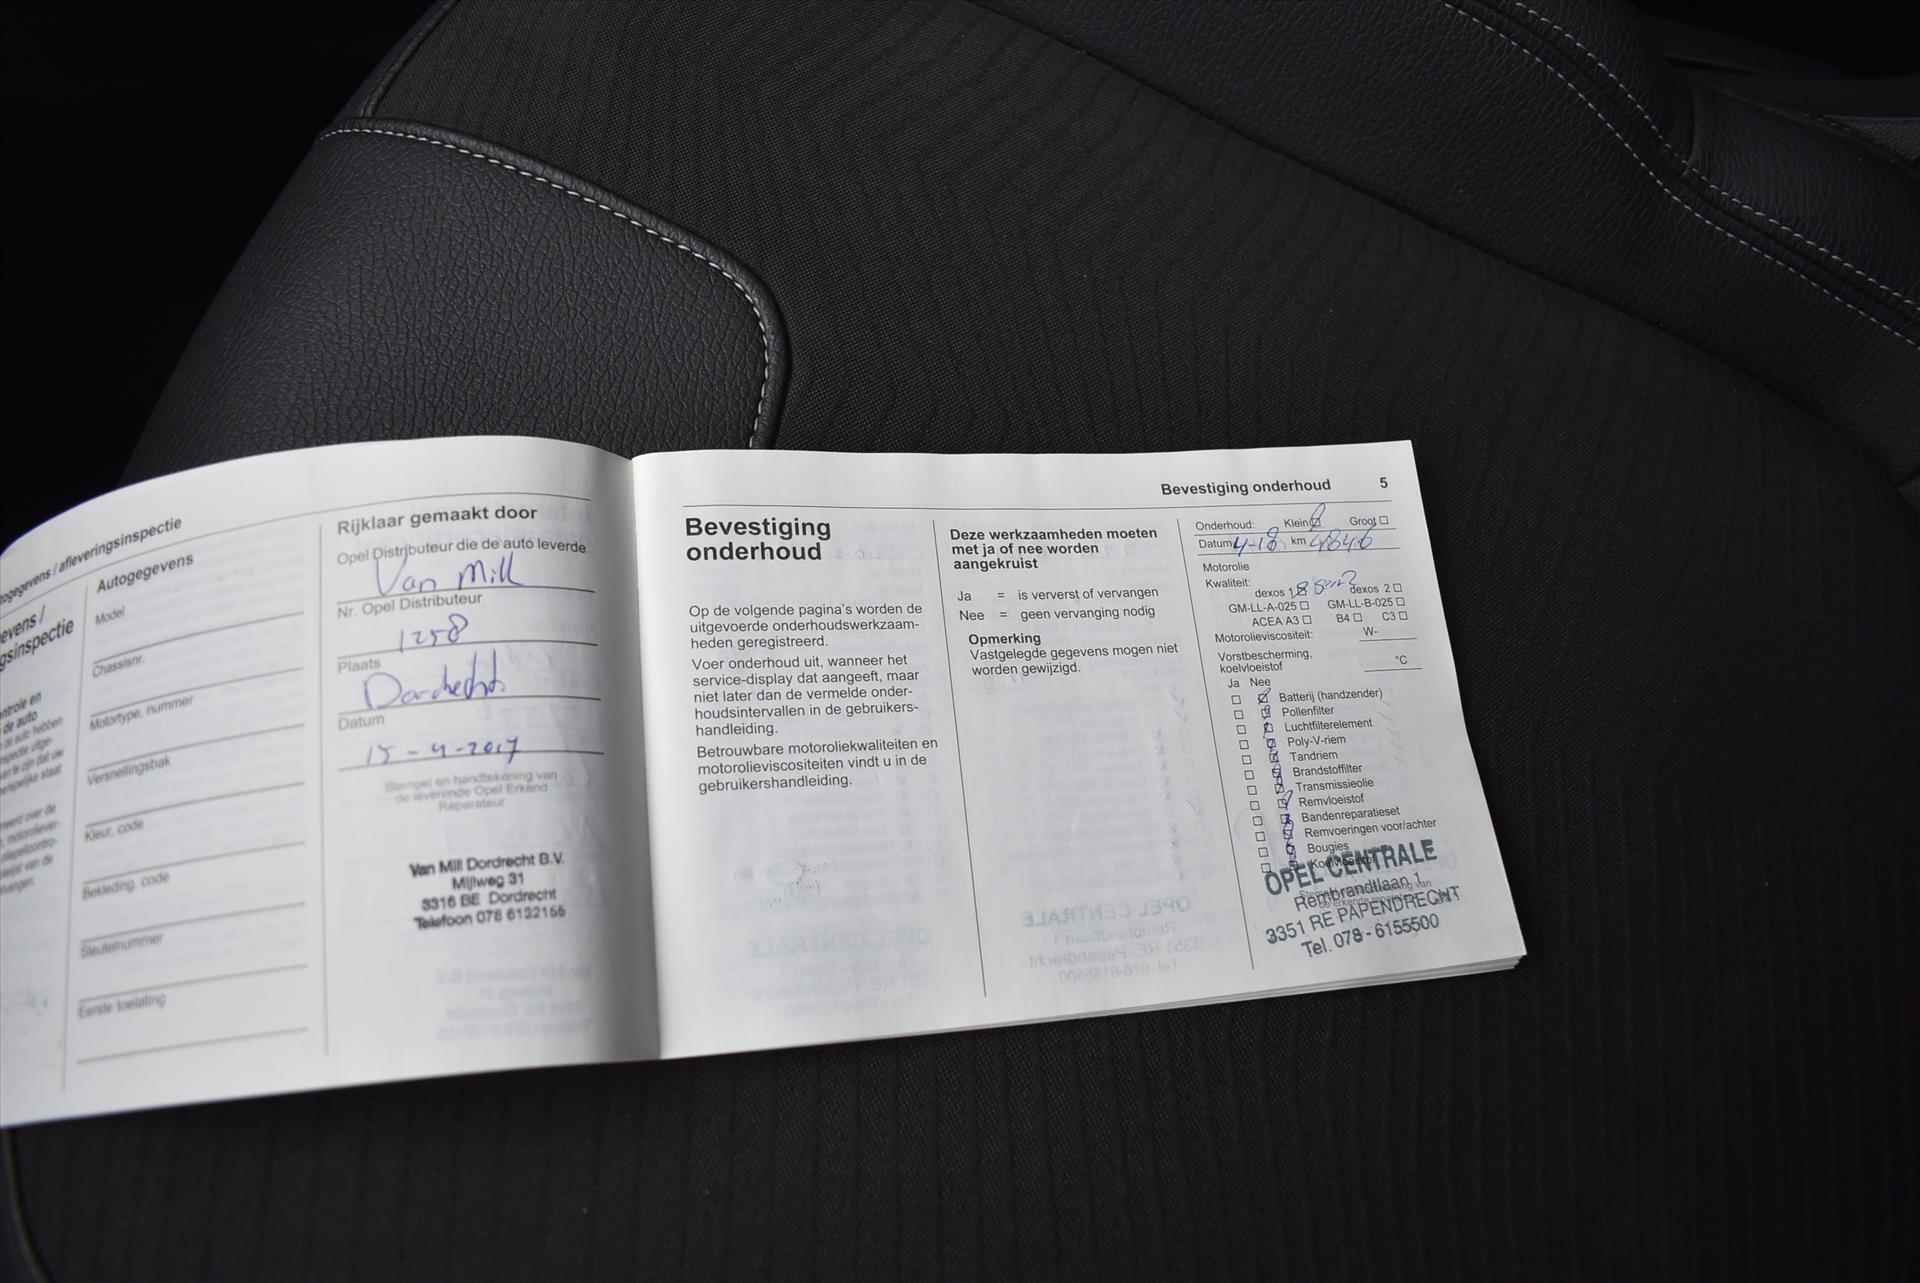 afleveringsinspectie
Autogegevens
Model
Chassisnr.
Motortype, nummer
Versnellingsbak
Kleur, code
Bekleding, code
Sleutelnummer
Eerste toelating
Rijklaar gemaakt door
Opel Distributeur die de auto leverde
Van Mill
Nr. Opel Distributeur
1258
Plaats
Dordrecht
Datum
15-4-2017
Stempel en handtekening van
de leverende Opel Erkend
Reparateur
Van Mill Dordrecht B.V.
Mijlweg 31
3316 BE Dordrecht
Telefoon 078 6132155
Bevestiging onderhoud 5
Bevestiging
onderhoud
Op de volgende pagina's worden de
uitgevoerde onderhoudswerkzaam-
heden geregistreerd.
Voer onderhoud uit, wanneer het
service-display dat aangeeft, maar
niet later dan de vermelde onder-
houdsintervallen in de gebruikers-
handleiding.
Betrouwbare motoroliekwaliteiten en
motorolieviscositeiten vindt u in de
gebruikershandleiding.
Deze werkzaamheden moeten
met ja of nee worden
aangekruist
Ja = is ververst of vervangen
Nee = geen vervanging nodig
Opmerking
Vastgelegde gegevens mogen niet
worden gewijzigd.
Onderhoud: Klein Groot
Datum 4-18 km 4846
Motorolie
Kwaliteit:
dexos 1 dexos 2
GM-LL-A-025 GM-LL-B-025
ACEA A3 B4 C3
Motorolieviscositeit: W-
Vorstbescherming,
koelvloeistof °C
Ja Nee
Batterij (handzender)
Pollenfilter
Luchtfilterelement
Poly-V-riem
Tandriem
Brandstoffilter
Transmissieolie
Remvloeistof
Bandenreparatieset
Remvoeringen voor/achter
Bougies
OPEL CENTRALE
Rembrandtlaan 1
3351 RE PAPENDRECHT
Tel. 078 - 6155500